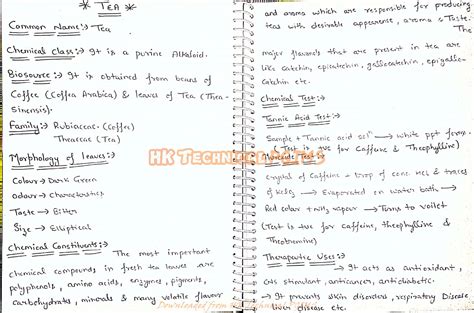 * TEA *
Common Name:→ Tea
Chemical Class:→ It is a purine Alkaloid.
Biosource:→ It is obtained from beans of
Coffee (Coffea Arabica) & leaves of Tea (Thea-
Sinensis).
Family:→ Rubiaceae (Coffee)
Theaceae (Tea)
Morphology of leaves:→
Colour → Dark Green
Odour → Characteristics
Taste → Bitter
Size → Elliptical
Chemical Constituents:→
The most important
chemical compounds in fresh tea leaves are
polyphenols, amino acids, enzymes, pigments,
carbohydrates, minerals & many volatile flavour
and aroma which are responsible for producing
teas with desirable appearance, aroma & Taste.
The
major flavonol's that are present in tea are
like catechin, epicatechin, gallocatechin, epigallo-
catechin etc.
Chemical Test:→
Tannic Acid Test:→
Sample + Tannic acid sol^n → white ppt form
(Test is +ve for Caffeine & Theophylline)
Murexide Test:→
Crystal of Caffeine → Drop of conc. HCl & traces
of KClO3 → Evaporated on water bath →
Red colour + NH3 vapour → Turns to voilet
(Test is +ve for caffeine, theophylline &
Theobromine)
Therapeutic Uses:→
→ It acts as antioxidant,
CNS stimulant, anticancer, antidiabetic.
→ It prevents skin disorders, respiratory Disease,
liver disorders etc.
HK Technical
Downloaded from